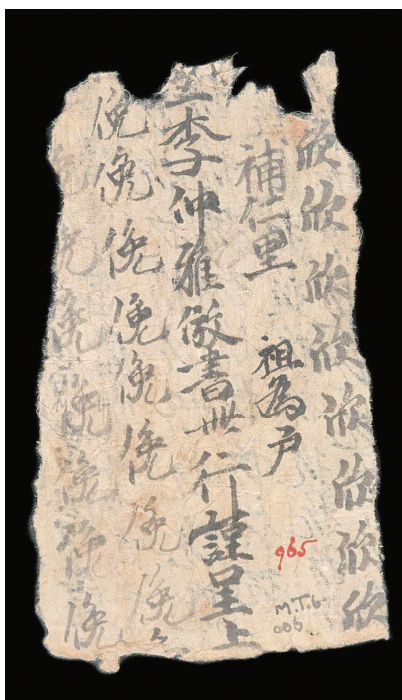 欣欣欣欣欣欣欣欣
補仁里 祖為戶
生李仲雅倣書卌行謹呈上
俛俛俛俛俛俛俛俛
俛俛俛俛俛俛俛
965
M.T.b.
006